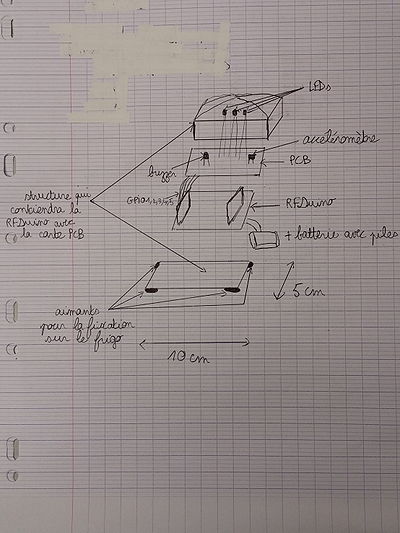 LEDs
accéléromètre
buzzer
PCB
structure qui
contiendra la
RFDuino avec
la carte PCB
RFDuino
+ batterie avec piles
5 cm
aimants
pour la fixation
sur le frigo
10 cm